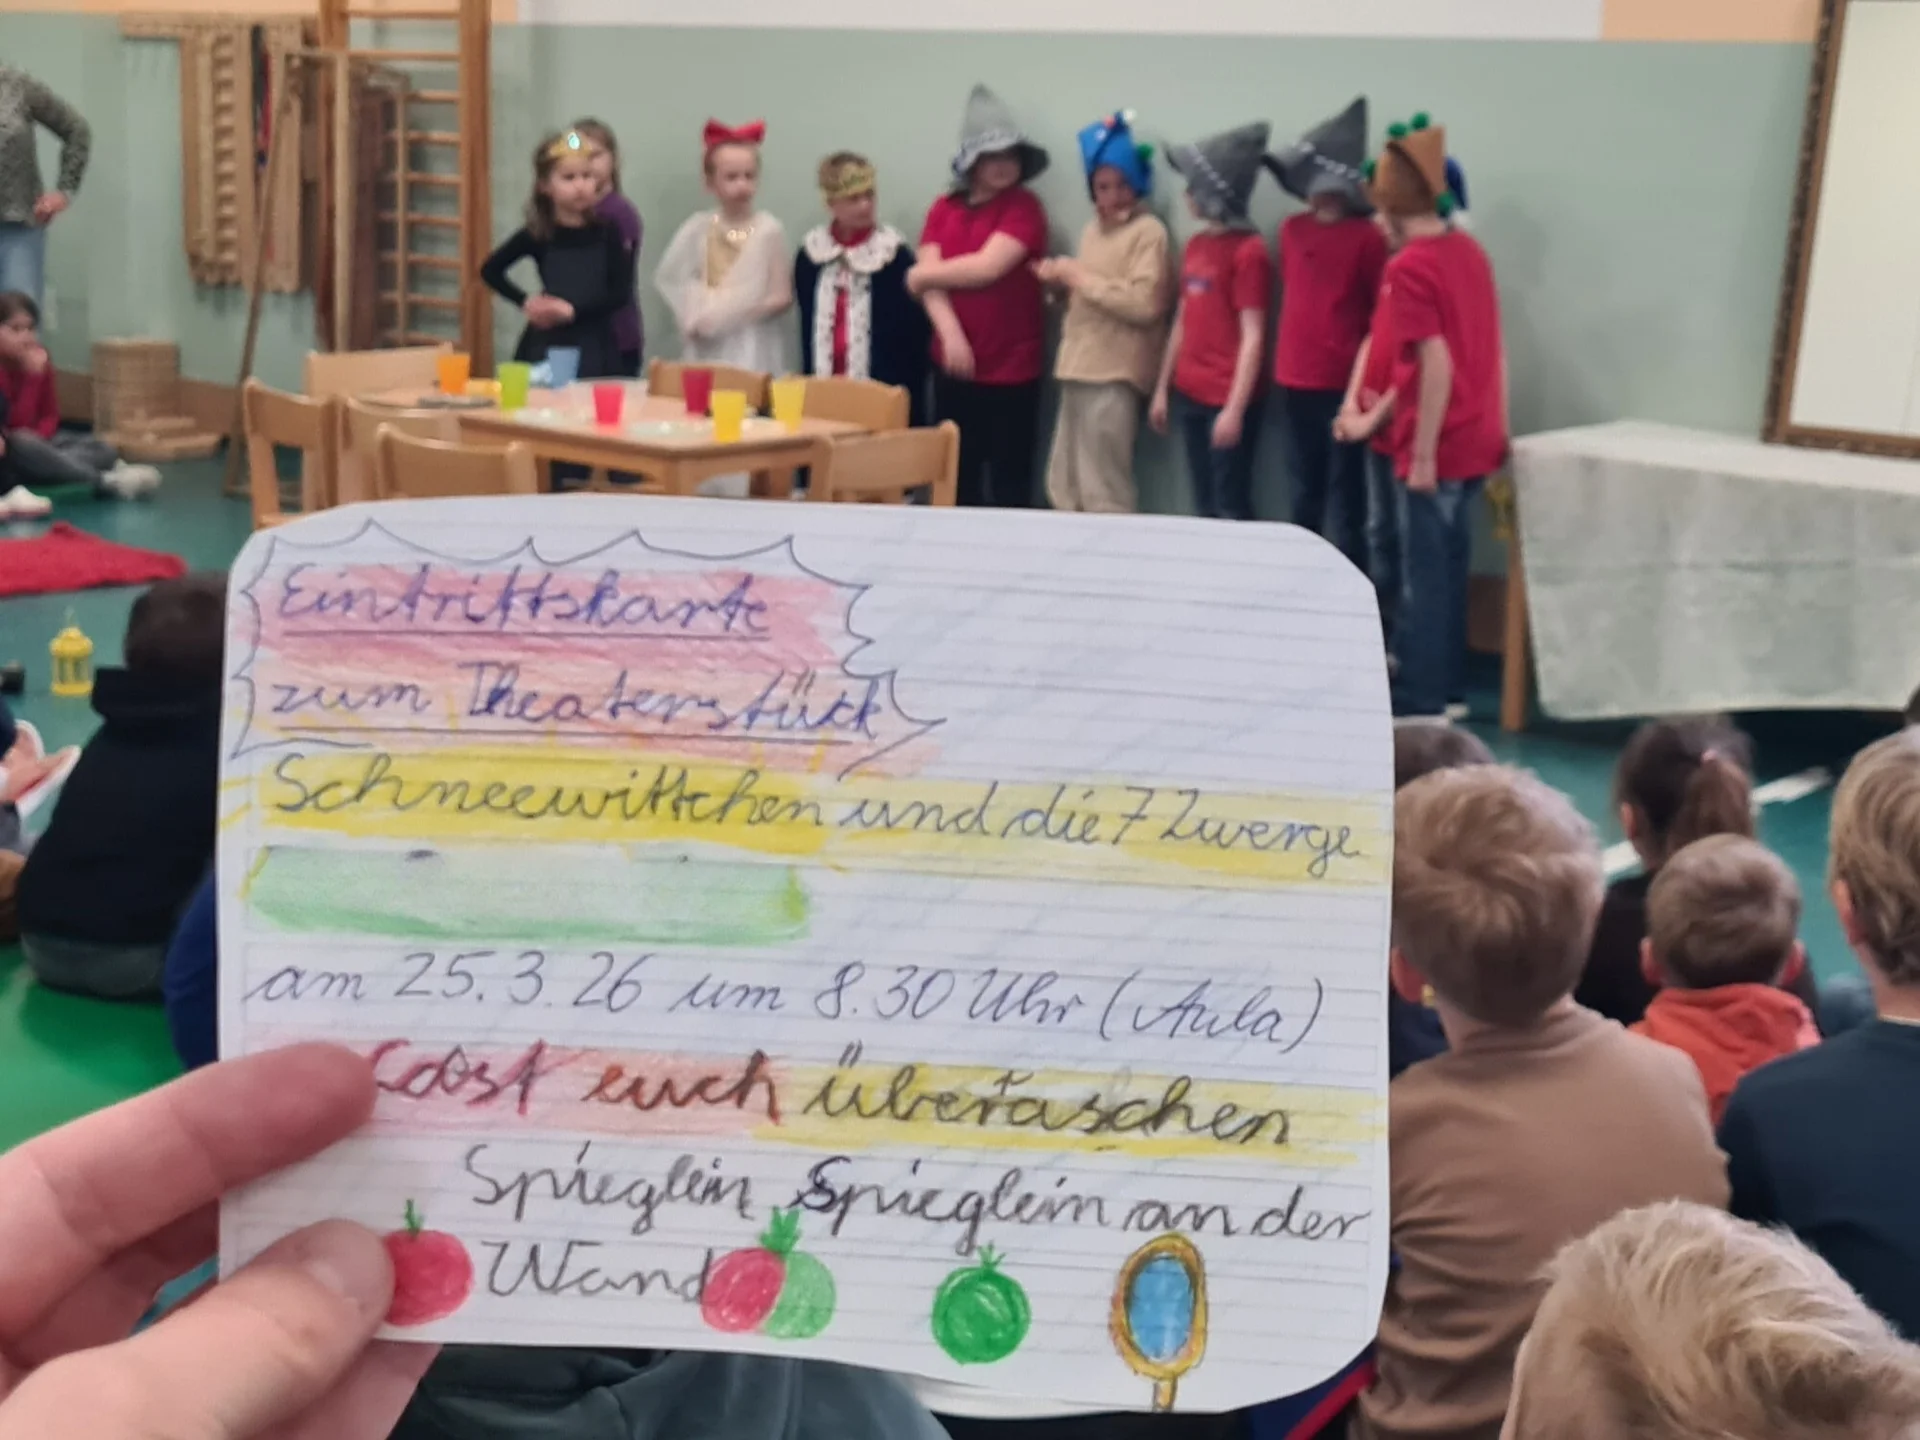 Eintrittskarte
zum Theaterstück
Schneewittchen und die 7 Zwerge
am 25.3.26 um 8.30 Uhr (Aula)
Lasst euch überraschen
Spieglein, Spieglein an der
Wand